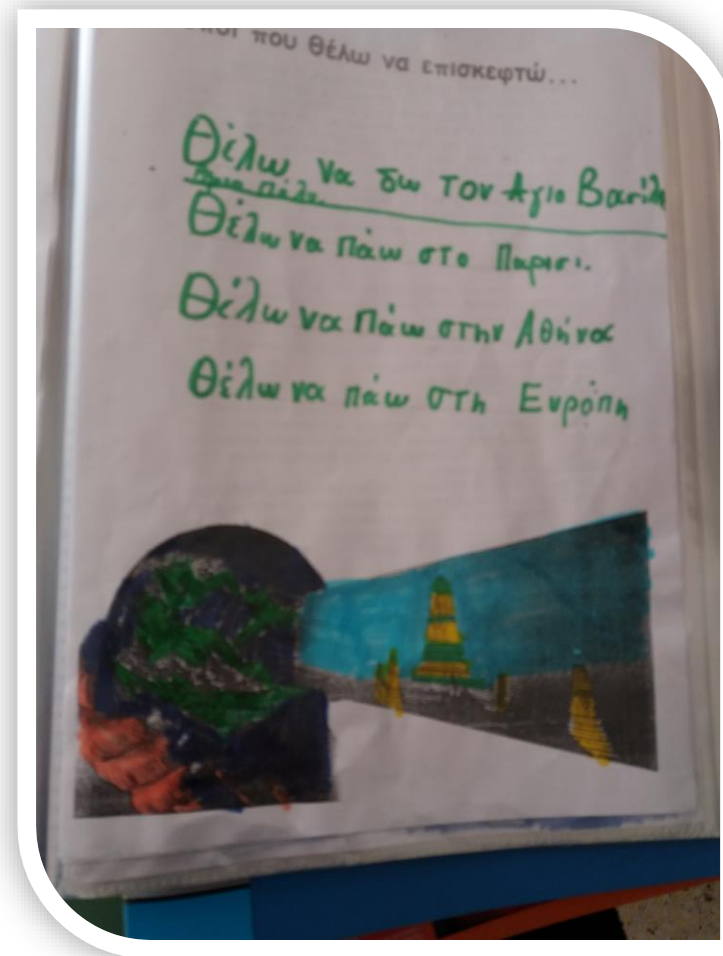 που θέλω να επισκεφτώ...
Θέλω να δω τον Αγιο Βασίλη
Θέλω να πάω στο Παρισι.
Θέλω να πάω στην Αθήνα
Θέλω να πάω στη Ευρόπη